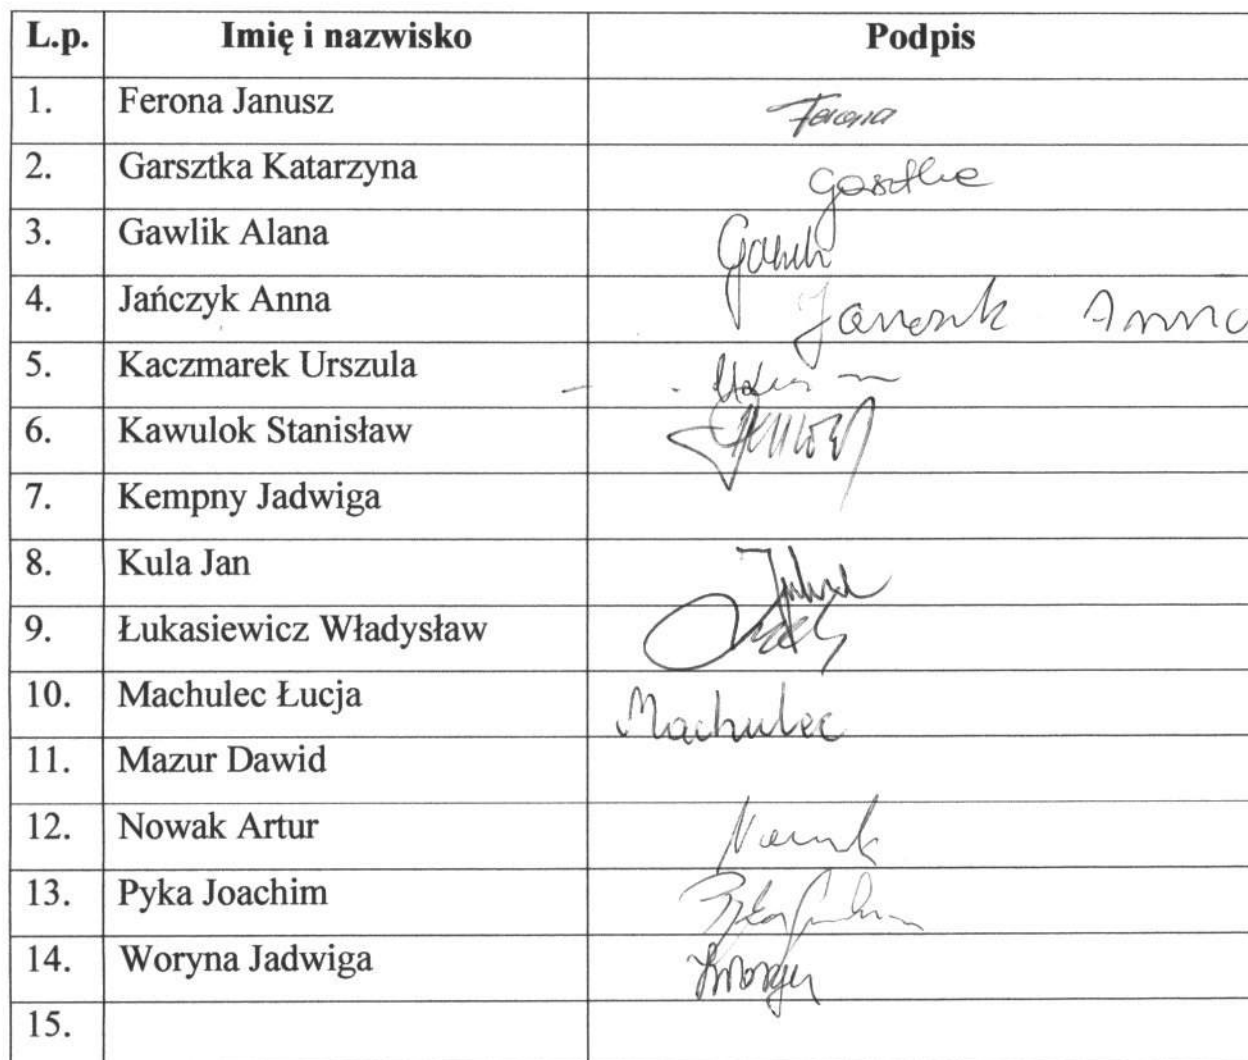 L.p. Imię i nazwisko Podpis
1. Ferona Janusz Ferona
2. Garsztka Katarzyna
3. Gawlik Alana
4. Jańczyk Anna Anna
5. Kaczmarek Urszula
6. Kawulok Stanisław
7. Kempny Jadwiga
8. Kula Jan
9. Łukasiewicz Władysław
10. Machulec Łucja Machulec
11. Mazur Dawid
12. Nowak Artur Nowak
13. Pyka Joachim
14. Woryna Jadwiga
15.